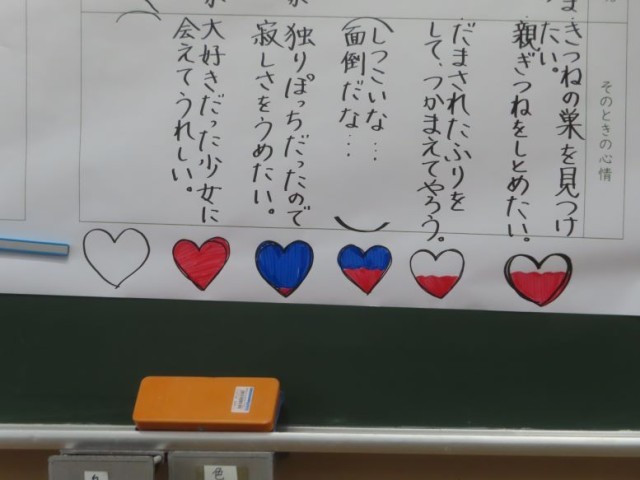 そのときの心情
きつねの巣を見つけ
たい。
親ぎつねをしとめたい。
だまされたふりを
して、つかまえてやろう。
（しつこいな…
面倒だな…）
独りぼっちだったので
寂しさをうめたい。
大好きだった少女に
会えてうれしい。
色